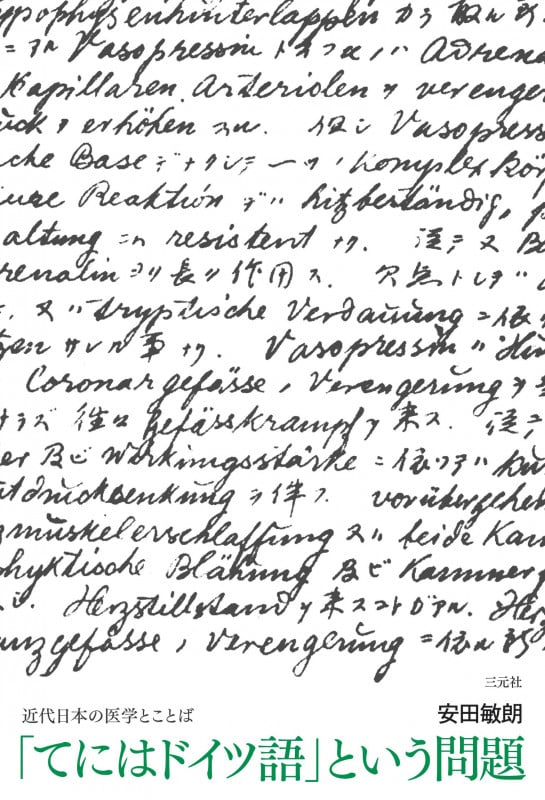 ypophysenhinterlappen カラ
Vasopressin Adrena
Kapillaren. Arteriolen ヲ verenger
uck ヲ erhöhen スル. 但シ Vasopress
che Base Komplex kör
ure Reaktion hitzbeständig,
altung resistent ナリ. 従テ又
renalin ヨリ長ク作用ス. 欠点トシテハ
又ハ tryptische Verdauung
事ナリ. Vasopressin ハ
Coronargefässe, Verengerung ヲ
往々 Gefässkrampf ヲ来ス.
er 及ビ Wirkungsstärke = 依ツテハ
utdrucksenkung ヲ伴フ. vorübergehen
zmuskelerschlaffung 又ハ beide Kam
phyktische Blähung 及ビ Kammer
Herzstillstand ヲ来スコトガアル. Herz
anzgefässe, Verengerung =
三元社
近代日本の医学とことば
安田敏朗
「てにはドイツ語」という問題